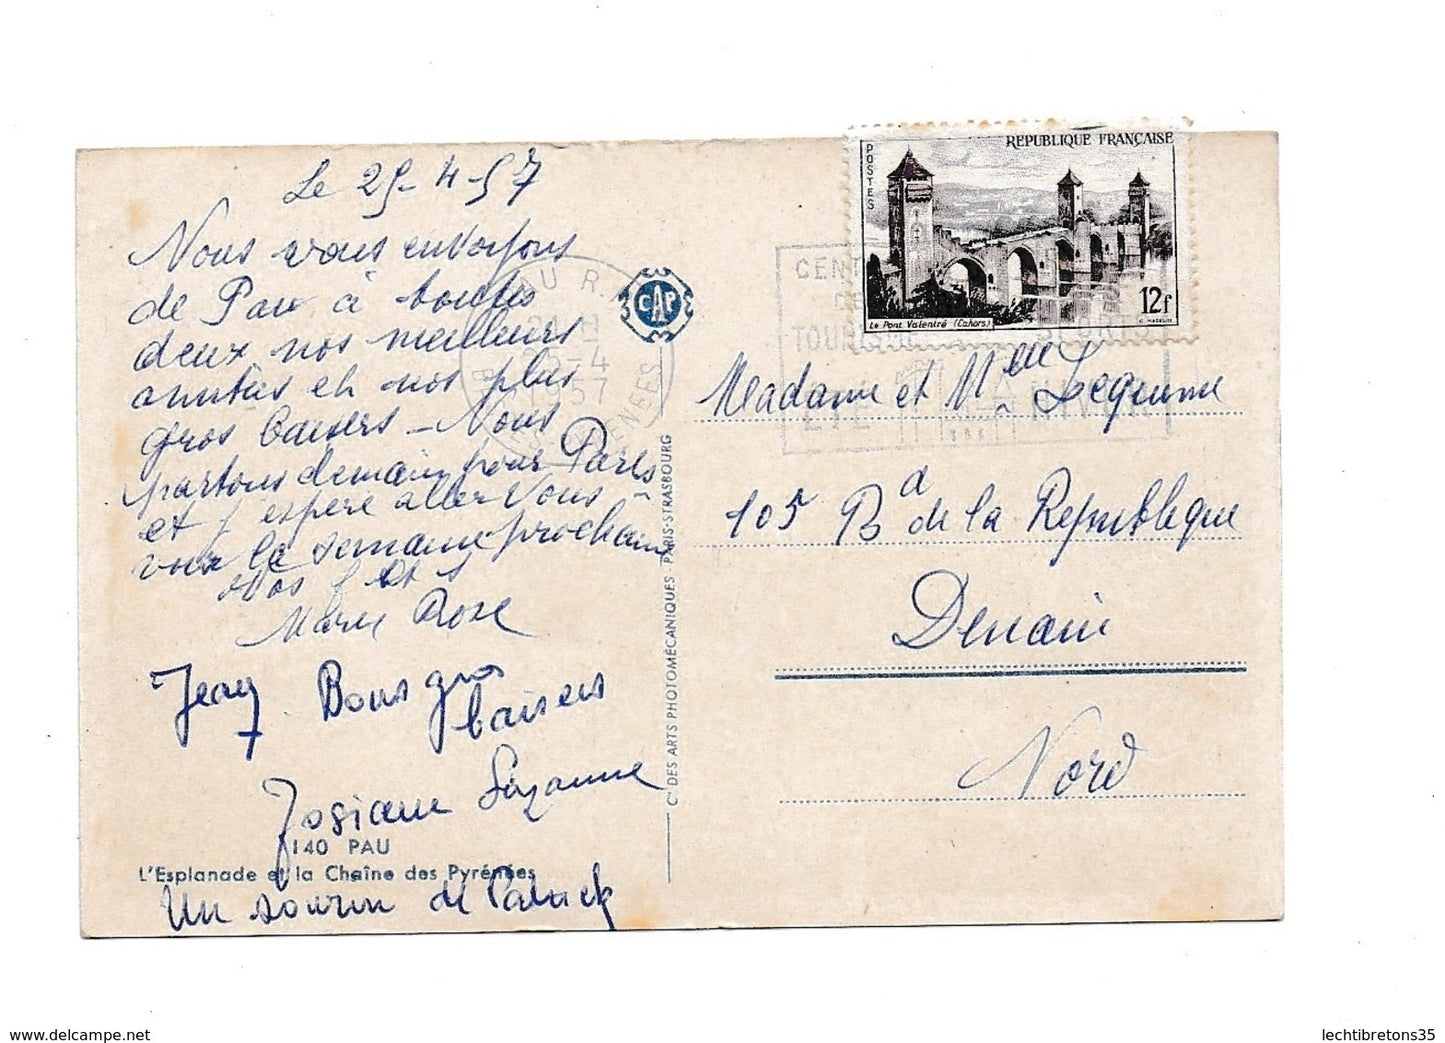 Le 25-4-57
Nous vous envoyons
de Pau à toutes
deux nos meilleurs
amitiés et nos plus
gros baisers - Nous
partons demain pour Paris
et j'espère aller vous
voir la semaine prochaine
Vos
Marie Rose
Jean Bons gros
baisers
Josiane Suzanne
140 PAU
L'Esplanade et la Chaîne des Pyrénées
Un sourire de Patrick
CAP
PAU R.P.
21 H
25-4
1957
BSES PYRENEES
Cie DES ARTS PHOTOMÉCANIQUES - PARIS-STRASBOURG
REPUBLIQUE FRANÇAISE
POSTES
Le Pont Valentré (Cahors)
12f
CENT
DE
TOURISME SPORTS
ETE HIVER
Madame et Melle Lequime
105 Bd de la Republique
Denain
Nord
www.delcampe.net
lechtibretons35